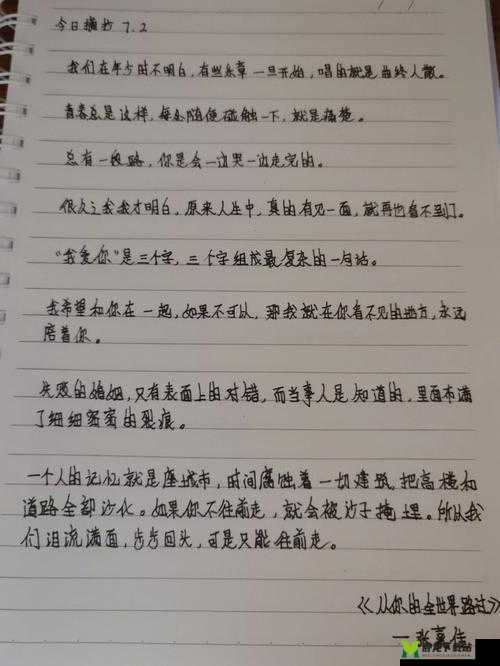 今日摘抄 7.2
我们在年少时不明白,有些乐章一旦开始,唱的就是曲终人散。
青春总是这样,每处随便碰触一下,就是痛楚。
总有一段路,你是会一边哭一边走完的。
很久之后我才明白,原来人生中,真的有见一面,就再也看不到了。
“我爱你”是三个字,三个字组成最复杂的一句话。
我希望和你在一起,如果不可以,那我就在你看不见的地方,永远
磨着你。
失败的婚姻,只有表面上的对错,而当事人是知道的,里面布满
了细细密密的裂痕。
一个人的记忆就是座城市,时间腐蚀着一切建筑,把高楼和
道路全部沙化。如果你不往前走,就会被沙子掩埋。所以我
们泪流满面,步步回头,可是只能往前走。
《从你的全世界路过》
—张嘉佳